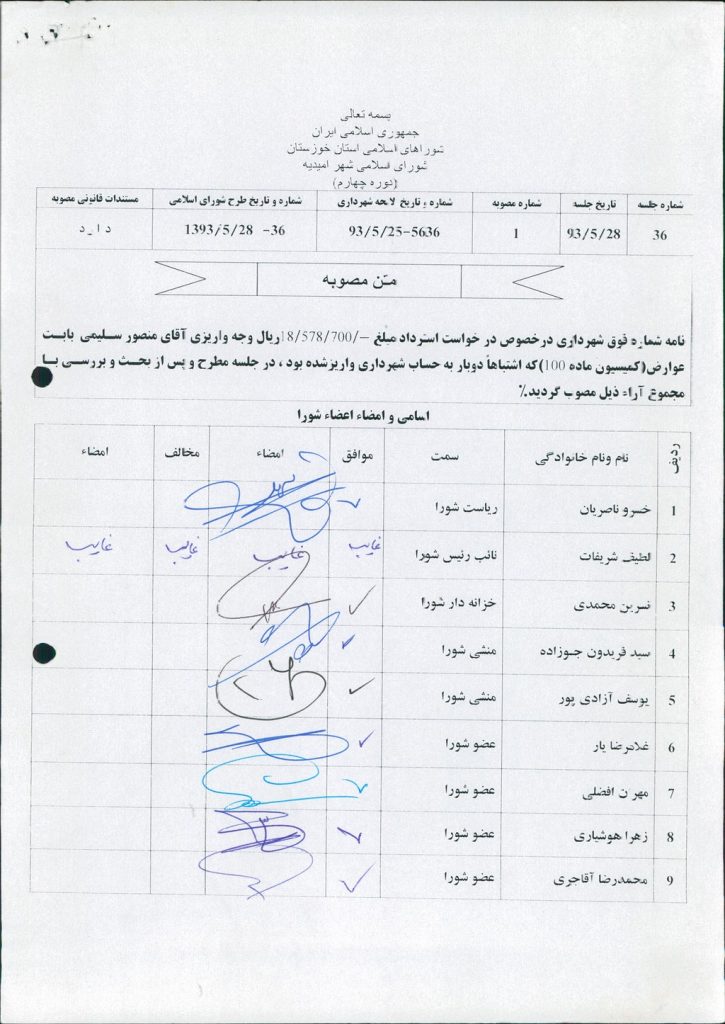 بسمه تعالی
جمهوری اسلامی ایران
شوراهای اسلامی استان خوزستان
شورای اسلامی شهر امیدیه
(دوره چهارم)
شماره جلسه تاریخ جلسه شماره مصوبه شماره و تاریخ لایحه شهرداری شماره و تاریخ طرح شورای اسلامی مستندات قانونی مصوبه
36 93/5/28 1 93/5/25-5636 1393/5/28 -36 دارد
متن مصوبه
نامه شماره فوق شهرداری درخصوص در خواست استرداد مبلغ -/18/578/700ریال وجه واریزی آقای منصور سلیمی بابت
عوارض(کمیسیون ماده 100)که اشتباهاً دوبار به حساب شهرداری واریزشده بود ، در جلسه مطرح و پس از بحث و بررسی با
مجموع آراء ذیل مصوب گردید.٪
اسامی و امضاء اعضاء شورا
ردیف نام ونام خانوادگی سمت موافق امضاء مخالف امضاء
1 خسرو ناصریان ریاست شورا
2 لطیف شریفات نائب رئیس شورا غایب غایب غایب غایب
3 نسرین محمدی خزانه دار شورا
4 سید فریدون جوزاده منشی شورا
5 یوسف آزادی پور منشی شورا
6 غلامرضا یار عضو شورا
7 مهران افضلی عضو شورا
8 زهرا هوشیاری عضو شورا
9 محمدرضا آقاجری عضو شورا